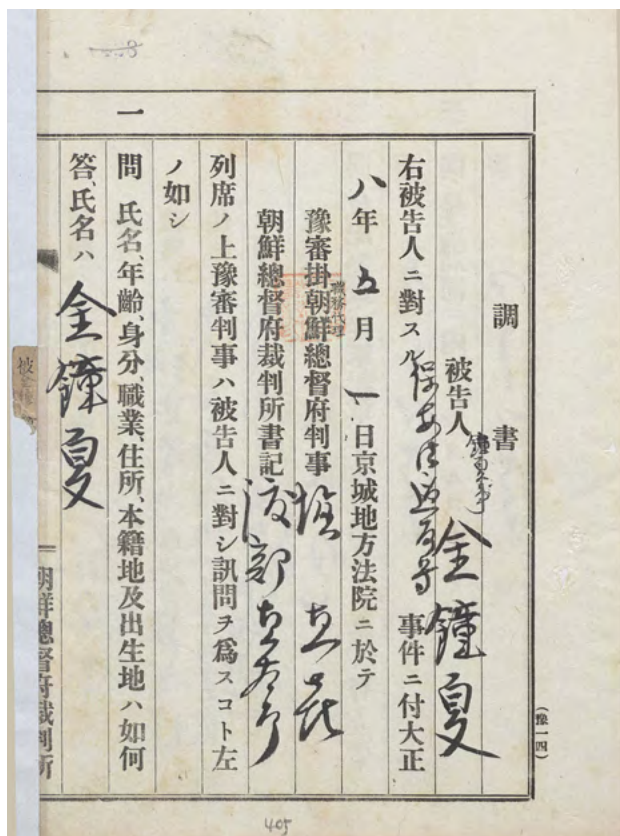 調書
被告人 金鐘夏
右被告人ニ對スル保安法違反等事件ニ付大正
八年五月一日京城地方法院ニ於テ
職務代理
豫審掛朝鮮總督府判事
朝鮮總督府裁判所書記 渡部
列席ノ上豫審判事ハ被告人ニ對シ訊問ヲ爲スコト左
ノ如シ
一
問 氏名、年齡、身分、職業、住所、本籍地及出生地ハ如何
答、氏名ハ 金鐘夏
朝鮮總督府裁判所
(豫一四)
405